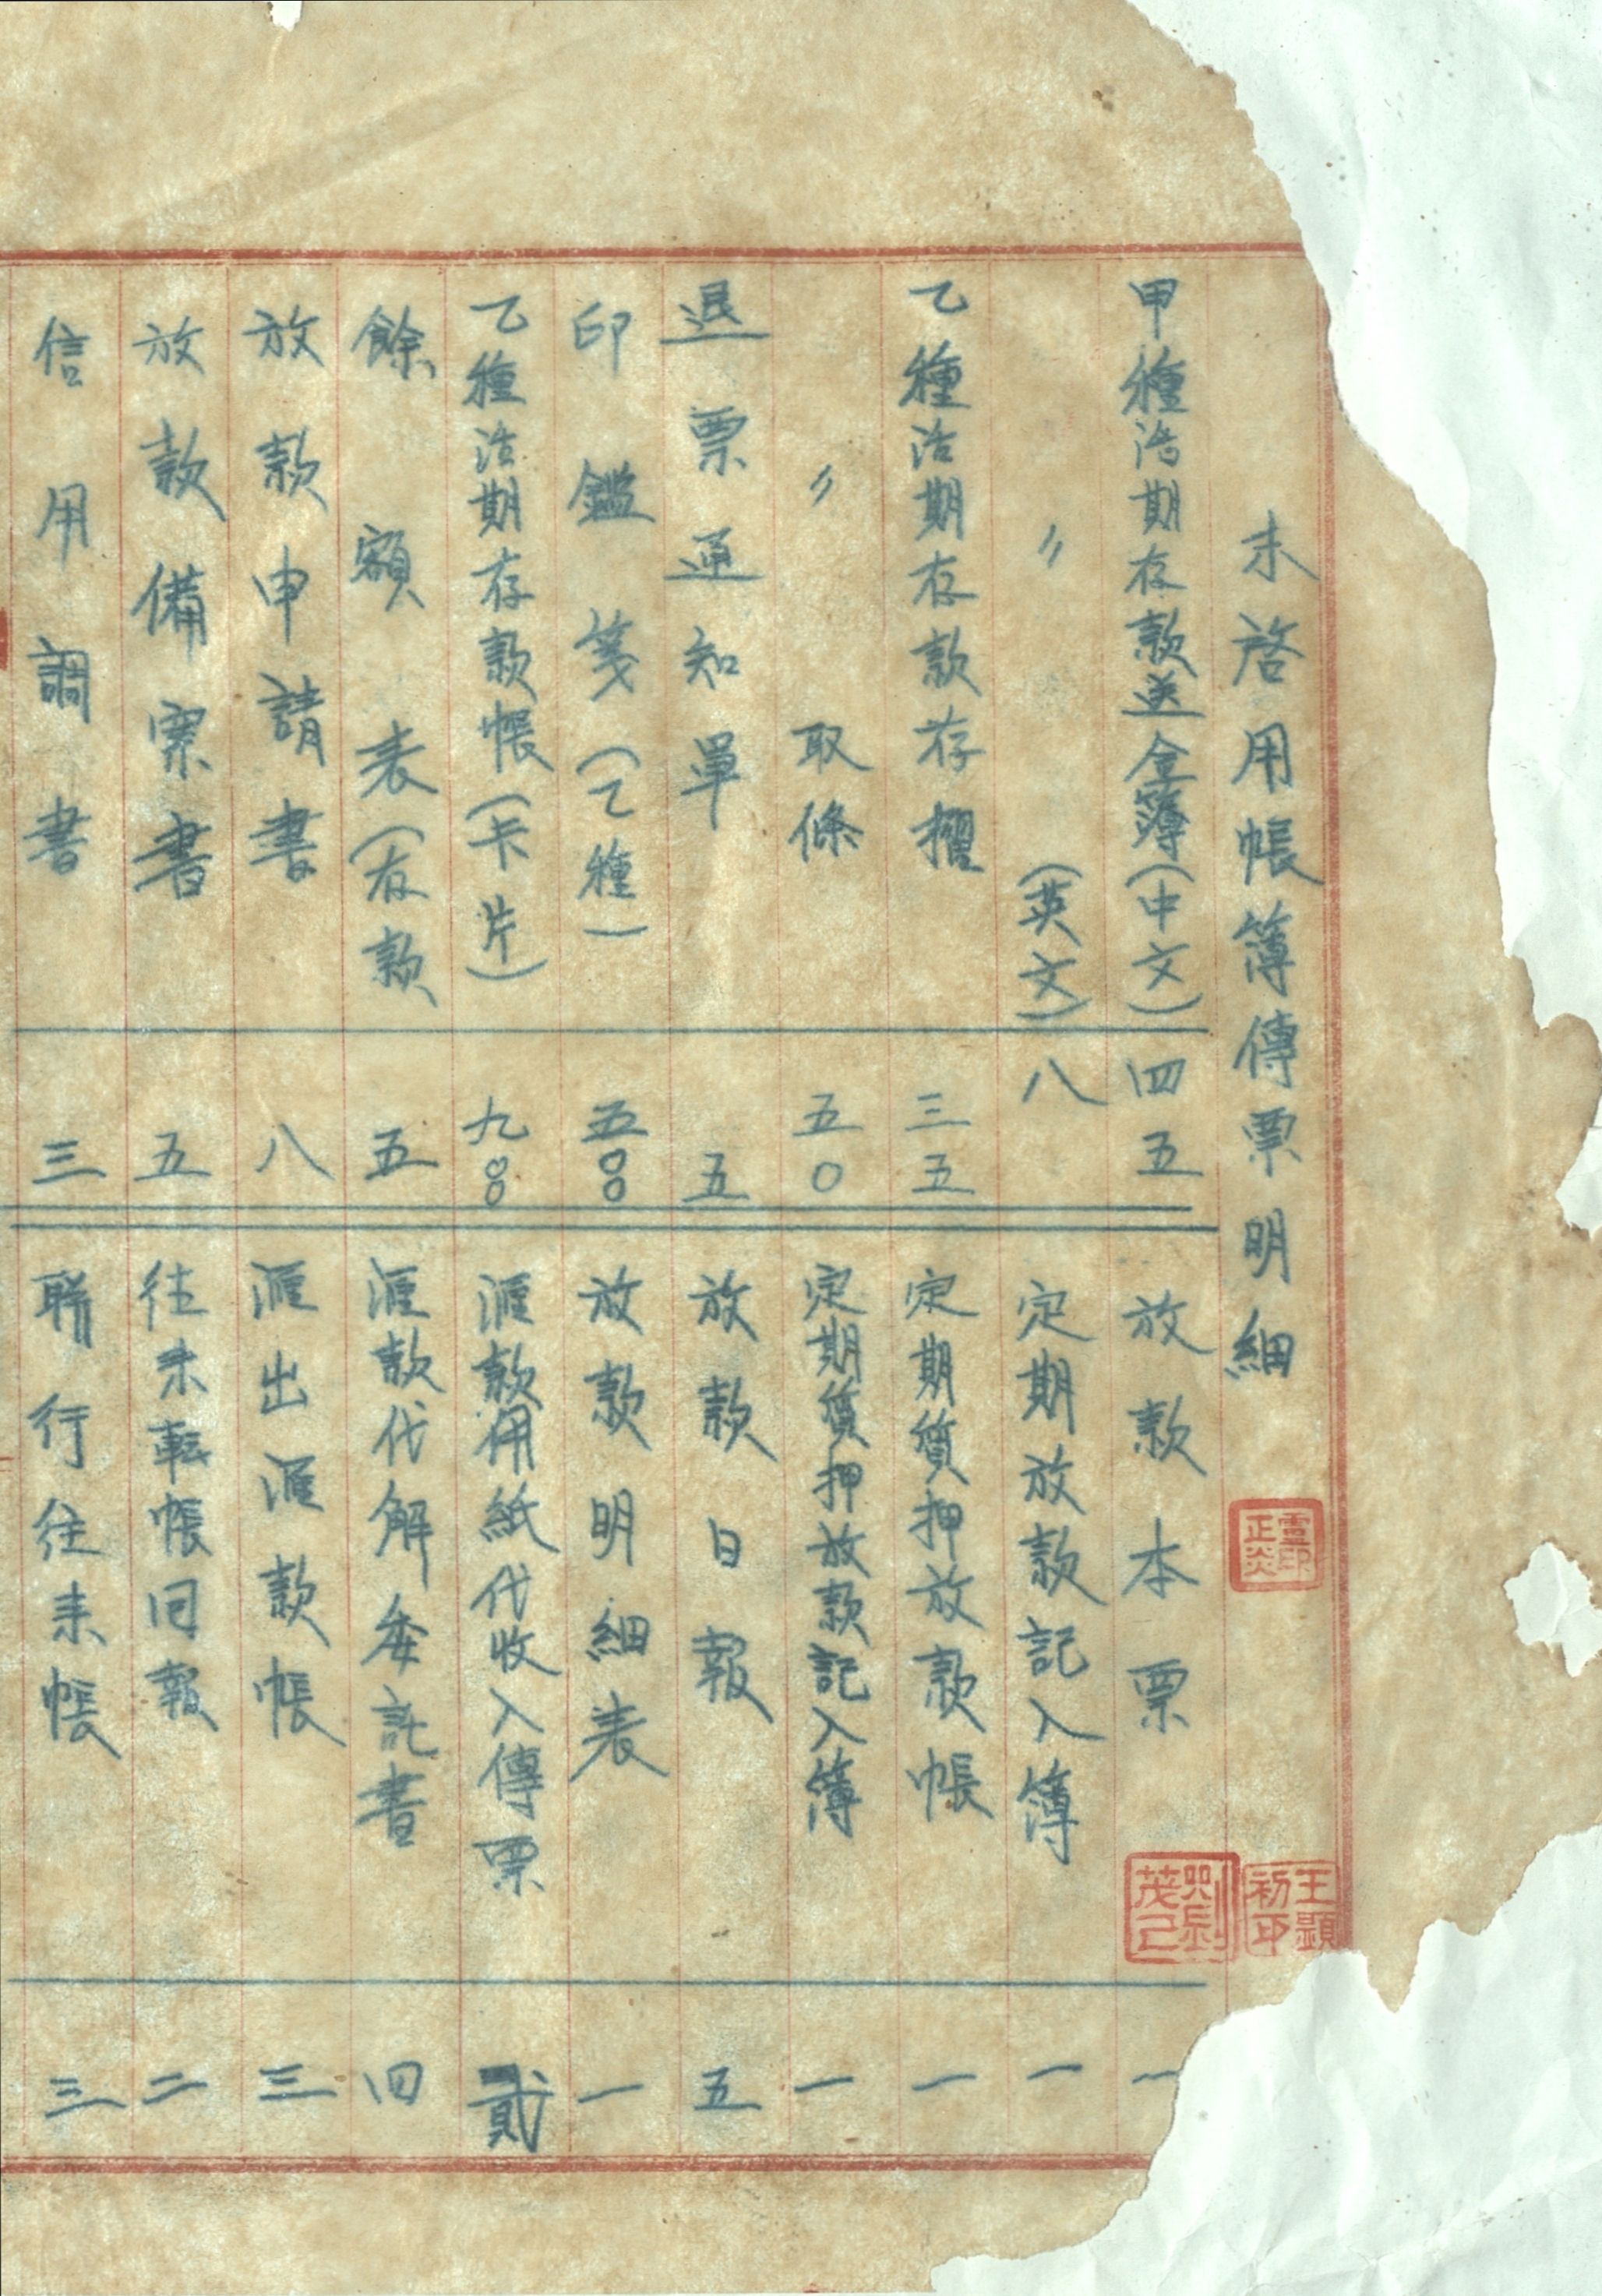 未啓用帳簿傳票明細
甲種活期存款送金簿(中文) 四五
〃 (英文) 八
乙種活期存款存摺 三五
〃 取條 五〇
退票通知單 五
印鑑箋(乙種) 五〇〇
乙種活期存款帳(卡片) 九〇〇
餘額表(存款 五
放款申請書 八
放款備案書 五
信用調書 三
放款本票 一
定期放款記入簿 一
定期質押放款帳 一
定期質押放款記入簿 一
放款日報 五
放款明細表 一
滙款用紙代收入傳票 貳
滙款代解委託書 四
滙出滙款帳 三
往來転帳回報 二
聯行往来帳 三
王顯初印
劉茂己